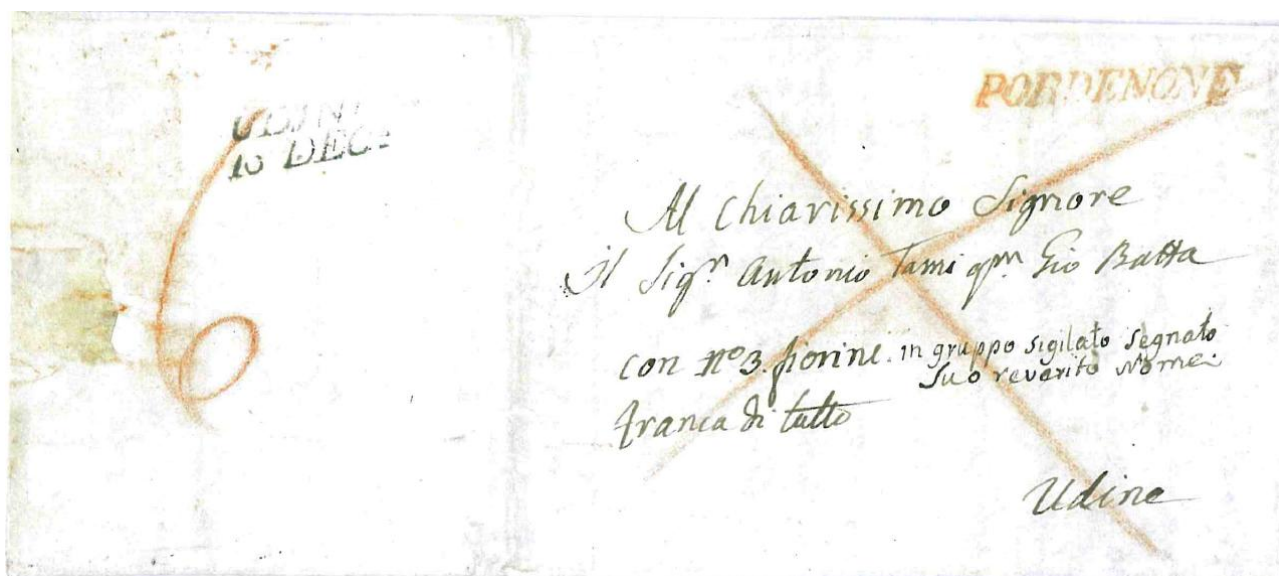 UDINE
15 DEC:
6
PORDENONE
Al Chiarissimo Signore
Il Sigʳ Antonio Tami qᵐ Gio Batta
con nº 3. fiorini. in gruppo sigilato segnato
Suo reverito Nome.
franca di tutto
Udine